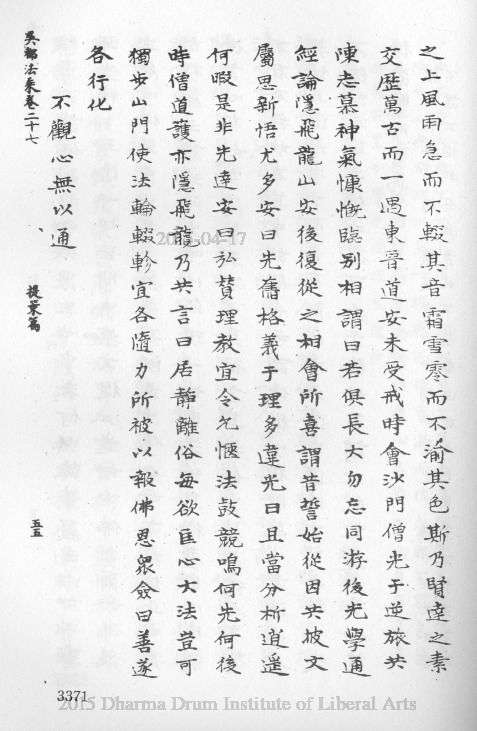 之上風雨急而不輟其音霜雪零而不渝其色斯乃賢達之素
交歷萬古而一遇東晉道安未受戒時會沙門僧光于逆旅共
陳志慕神氣慷慨臨別相謂曰若俱長大勿忘同游後光學通
經論隱飛龍山安後復從之相會所喜謂昔誓始從因共披文
屬思新悟尤多安曰先舊格義于理多違光曰且當分析逍遥
何暇是非先達安曰弘贊理教宜令允愜法鼓競鳴何先何後
時僧道護亦隱飛龍乃共言曰居靜離俗每欲匡心大法豈可
獨步山門使法輪輟軫宜各隨力所被以報佛恩眾僉曰善遂
各行化
不觀心無以通
吳都法乘卷二十七
提策篇
五五
3371
2015-04-17
2015 Dharma Drum Institute of Liberal Arts